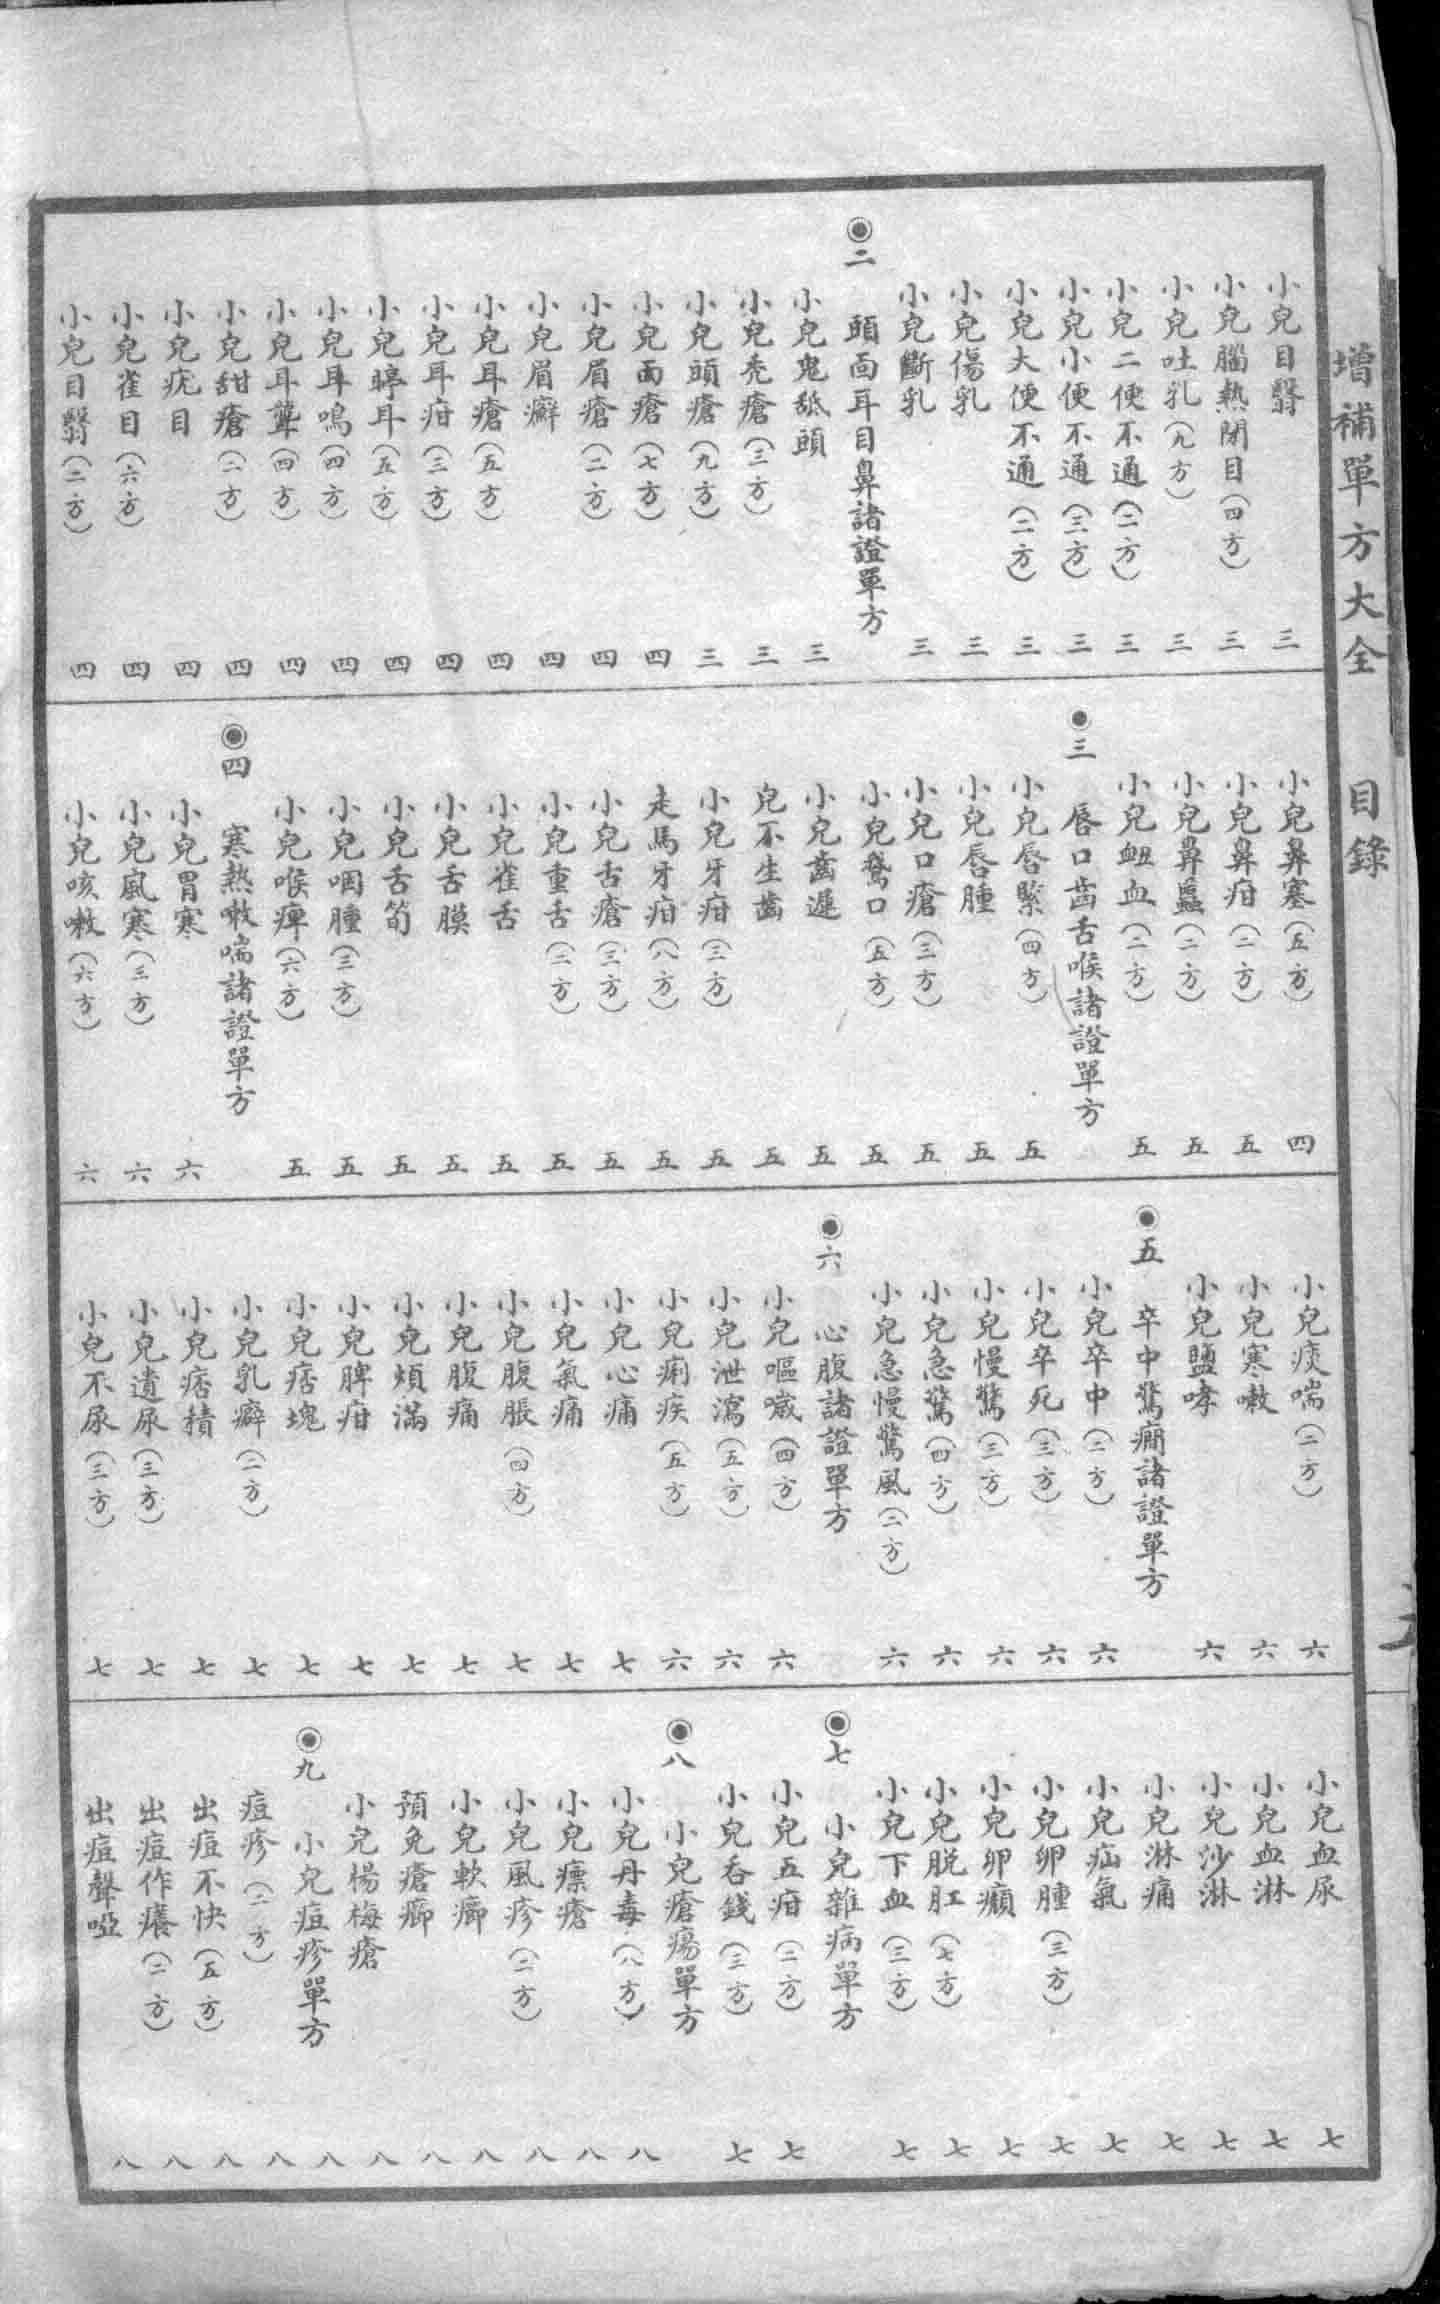 增補單方大全 目錄
小兒目翳 三
小兒腦熱閉目(四方) 三
小兒吐乳(九方) 三
小兒二便不通(二方) 三
小兒小便不通(三方) 三
小兒大便不通(二方) 三
小兒傷乳 三
小兒斷乳 三
◉二 頭面耳目鼻諸證單方
小兒鬼舐頭 三
小兒禿瘡(三方) 三
小兒頭瘡(九方) 三
小兒面瘡(七方) 四
小兒眉瘡(二方) 四
小兒眉癬 四
小兒耳瘡(五方) 四
小兒耳疳(三方) 四
小兒聤耳(五方) 四
小兒耳鳴(四方) 四
小兒耳聾(四方) 四
小兒甜瘡(二方) 四
小兒疣目 四
小兒雀目(六方) 四
小兒目翳(二方) 四
小兒鼻塞(五方) 四
小兒鼻疳(二方) 五
小兒鼻䘌(二方) 五
小兒衄血(二方) 五
◉三 唇口齒舌喉諸證單方
小兒唇緊(四方) 五
小兒唇腫 五
小兒口瘡(三方) 五
小兒鵞口(五方) 五
小兒齒遲 五
兒不生齒 五
小兒牙疳(三方) 五
走馬牙疳(八方) 五
小兒舌瘡(三方) 五
小兒重舌(二方) 五
小兒雀舌 五
小兒舌膜 五
小兒舌筍 五
小兒咽腫(三方) 五
小兒喉痺(六方) 五
◉四 寒熱嗽喘諸證單方
小兒胃寒 六
小兒風寒(三方) 六
小兒咳嗽(六方) 六
小兒痰喘(二方) 六
小兒寒嗽 六
小兒鹽哮 六
◉五 卒中驚癇諸證單方
小兒卒中(二方) 六
小兒卒死(三方) 六
小兒慢驚(三方) 六
小兒急驚(四方) 六
小兒急慢驚風(二方) 六
◉六 心腹諸證單方
小兒嘔噦(四方) 六
小兒泄瀉(五方) 六
小兒痢疾(五方) 六
小兒心痛 七
小兒氣痛 七
小兒腹脹(四方) 七
小兒腹痛 七
小兒煩滿 七
小兒脾疳 七
小兒痞塊 七
小兒乳癖(二方) 七
小兒痞積 七
小兒遺尿(三方) 七
小兒不尿(三方) 七
小兒血尿 七
小兒血淋 七
小兒沙淋 七
小兒淋痛 七
小兒疝氣 七
小兒卵腫(三方) 七
小兒卵癩 七
小兒脫肛(七方) 七
小兒下血(三方) 七
◉七 小兒雜病單方
小兒五疳(二方) 七
小兒吞錢(三方) 七
◉八 小兒瘡瘍單方
小兒丹毒(八方) 八
小兒瘭瘡 八
小兒風疹(二方) 八
小兒軟癤 八
預免瘡癤 八
小兒楊梅瘡 八
◉九 小兒痘疹單方
痘疹(二方) 八
出痘不快(五方) 八
出痘作癢(二方) 八
出痘聲啞 八